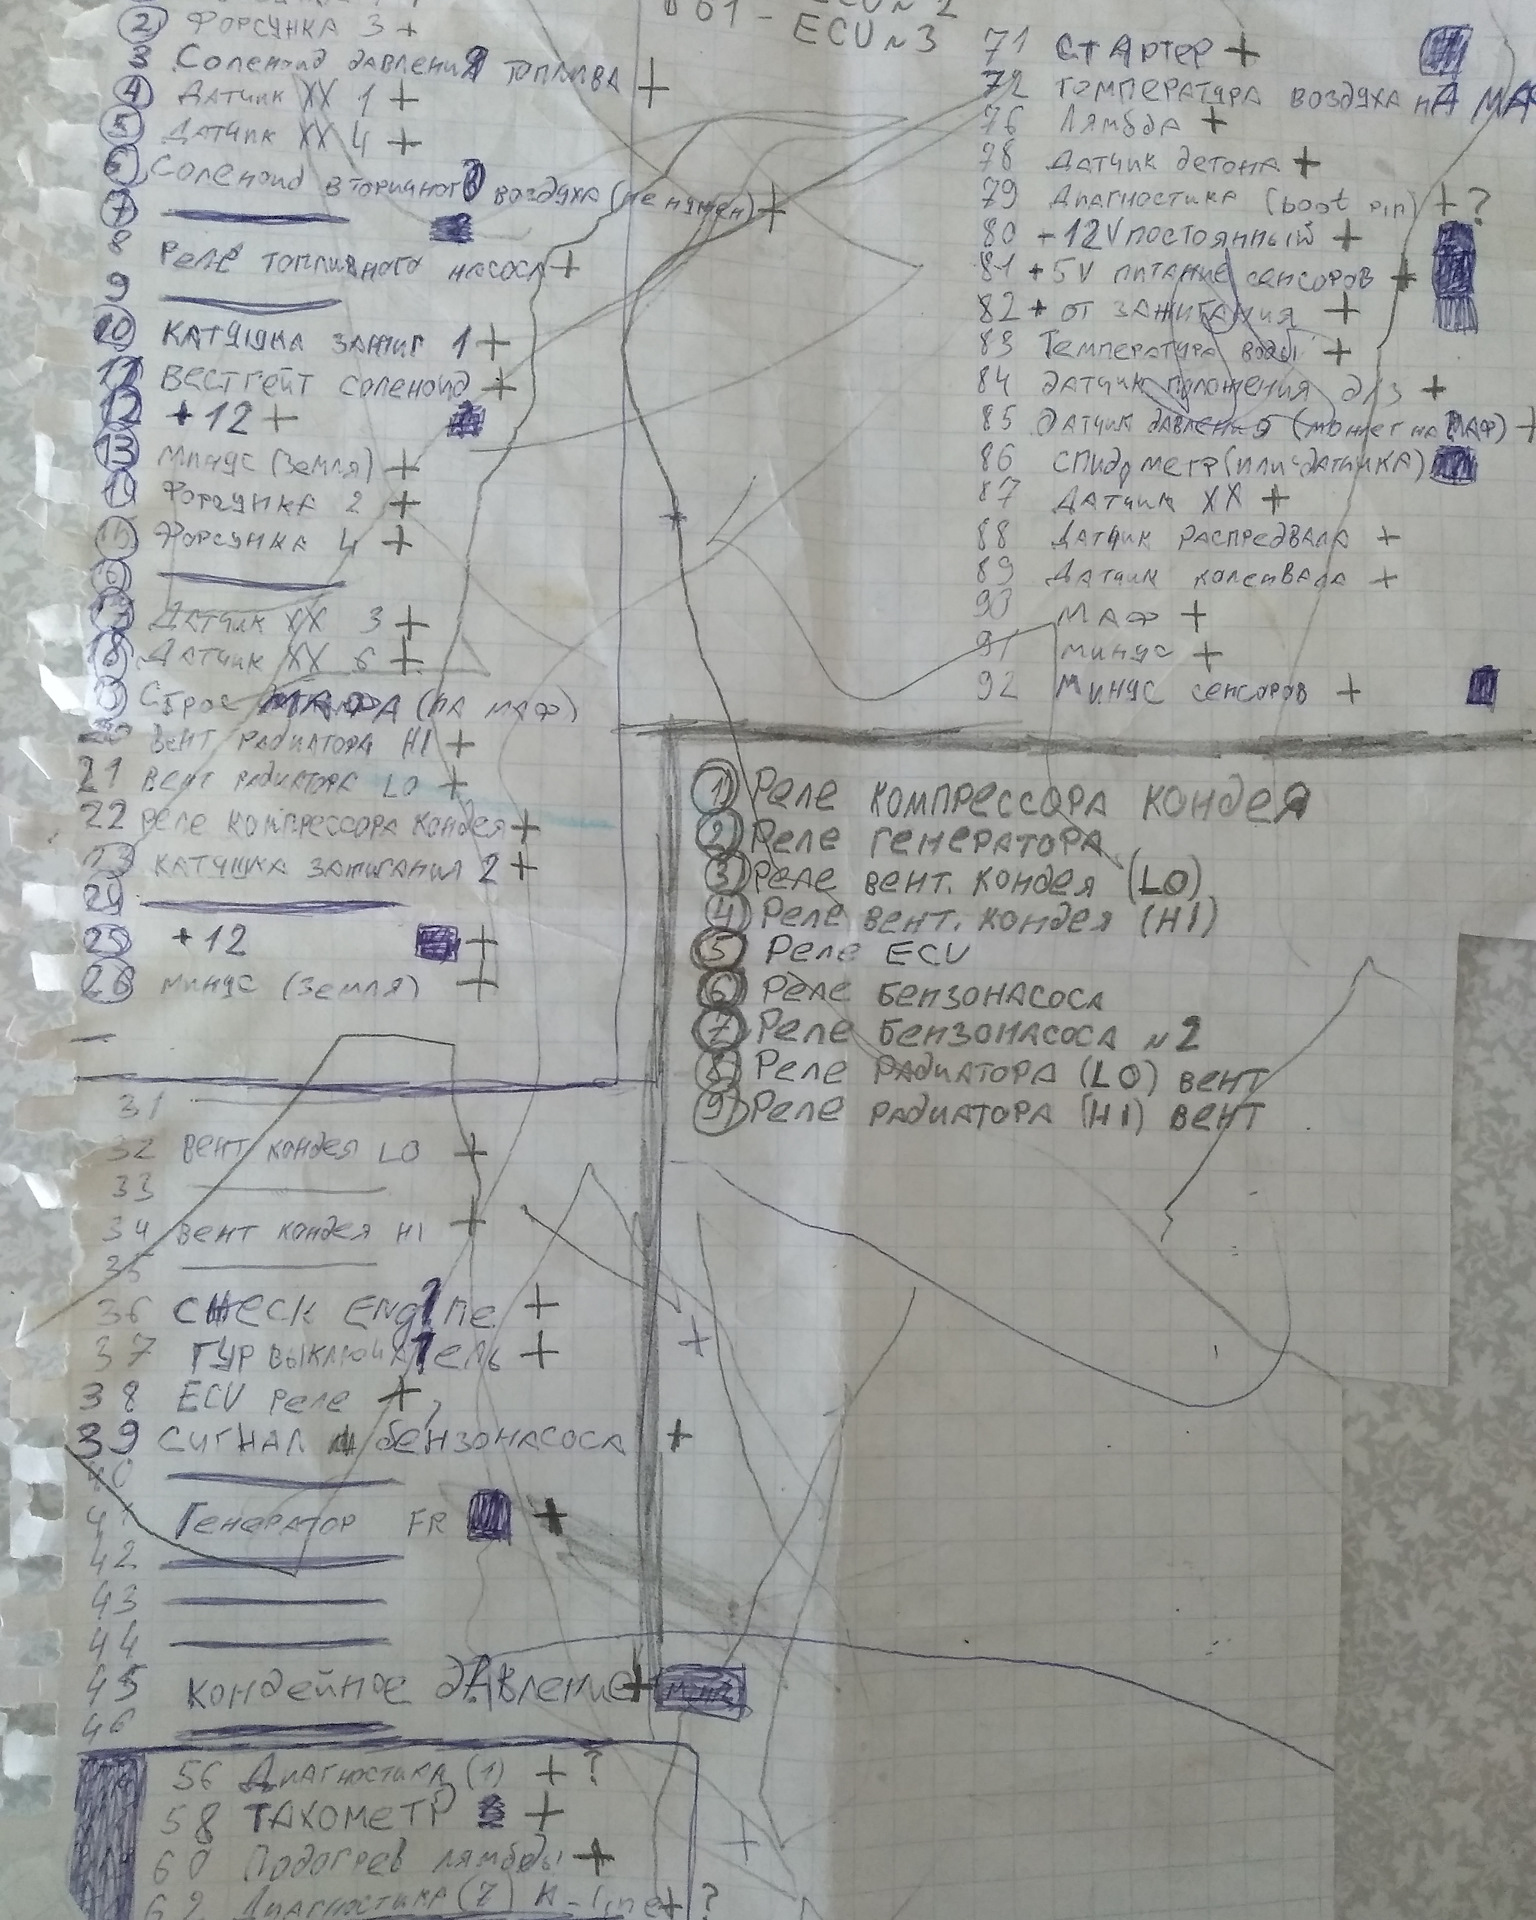 2 Форсунка 3 +
3 Соленоид давления топлива +
4 Датчик XX 1 +
5 Датчик XX 4 +
6 Соленоид вторичного воздуха (не нужен) +
7
8 Реле топливного насоса +
9
10 Катушка зажиг 1 +
11 Вестгейт соленоид +
12 +12 +
13 минус (земля) +
14 Форсунка 2 +
15 Форсунка 4 +
16
17 Датчик XX 3 +
18 Датчик XX 6 +
19 Сброс (на маф)
20 вент радиатора HI +
21 вент радиатора LO +
22 реле компрессора кондея +
23 катушка зажигания 2 +
24
25 +12 +
26 минус (земля) +
31
32 вент кондея LO +
33
34 вент кондея HI +
35
36 CHECK ENgine +
37 ГУР выключатель +
38 ECU реле +
39 Сигнал бензонасоса +
40
41 Генератор FR +
42
43
44
45 Кондейное давление +
46
56 Диагностика (1) + ?
58 Тахометр +
60 Подогрев лямбды +
62 Диагностика (7) K-line + ?
ECU N 2
61 - ECU N 3
71 Стартер +
72 температура воздуха на МАФ
76 Лямбда +
78 Датчик детона +
79 Диагностика (boot pin) + ?
80 +12V постоянный +
81 +5V питание сенсоров +
82 + от зажигания +
83 Температура воды +
84 датчик положения д/з +
85 Датчик давления (может на МАФ) +
86 спидрметр (или датчика)
87 Датчик XX +
88 Датчик распредвала +
89 Датчик коленвала +
90 МАФ +
91 минус +
92 минус сенсоров +
1 Реле компрессора кондея
2 Реле генератора
3 Реле вент. кондея (LO)
4 Реле вент. кондея (HI)
5 Реле ECU
6 Реле бензонасоса
7 Реле бензонасоса N2
8 Реле радиатора (LO) вент
9 Реле радиатора (HI) вент